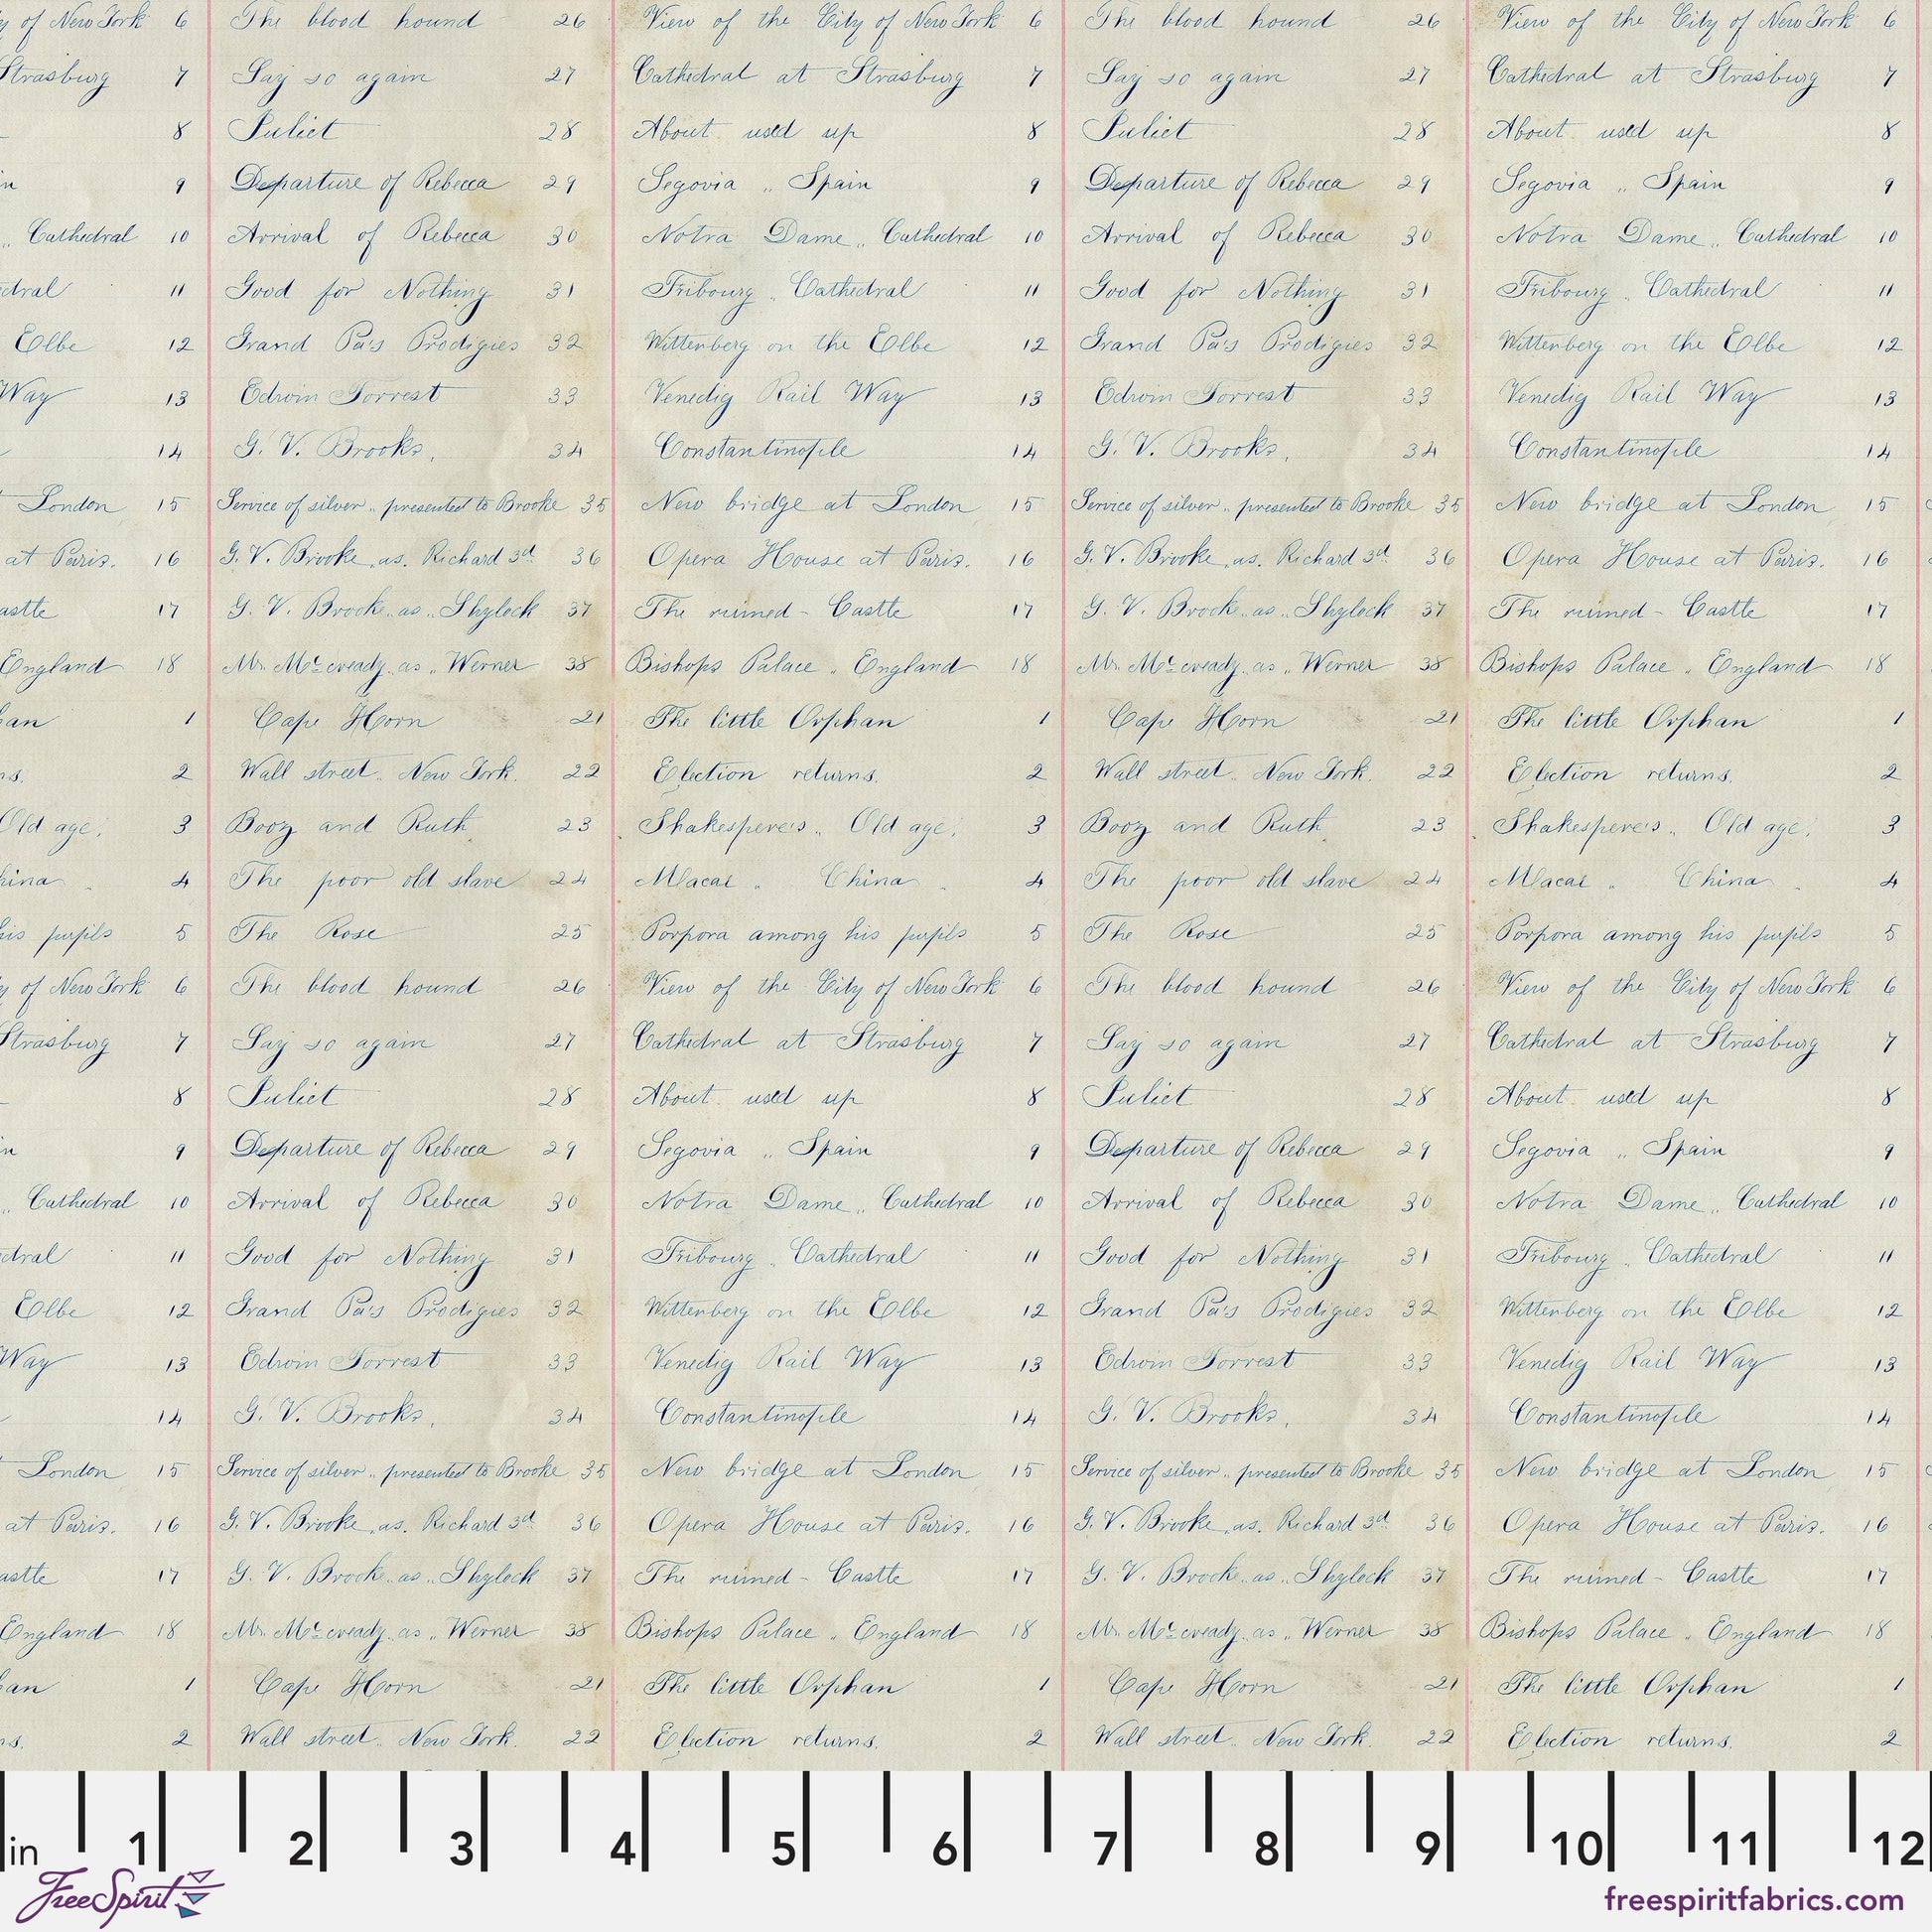 y of New York 6 The blood hound 26 View of the City of New York 6 The blood hound 26 View of the City of New York 6
Strasburg 7 Say so again 27 Cathedral at Strasburg 7 Say so again 27 Cathedral at Strasburg 7
8 Juliet 28 About used up 8 Juliet 28 About used up 8
in 9 Departure of Rebecca 29 Segovia „ Spain 9 Departure of Rebecca 29 Segovia „ Spain 9
„ Cathedral 10 Arrival of Rebecca 30 Notra Dame „ Cathedral 10 Arrival of Rebecca 30 Notra Dame „ Cathedral 10
dral 11 Good for Nothing 31 Fribourg „ Cathedral 11 Good for Nothing 31 Fribourg „ Cathedral 11
Elbe 12 Grand Pa's Prodigies 32 Wittenberg on the Elbe 12 Grand Pa's Prodigies 32 Wittenberg on the Elbe 12
Way 13 Edwin Forrest 33 Venedig Rail Way 13 Edwin Forrest 33 Venedig Rail Way 13
14 G. V. Brooks. 34 Constantinople 14 G. V. Brooks. 34 Constantinople 14
London 15 Service of silver „ presented to Brooke 35 New bridge at London 15 Service of silver „ presented to Brooke 35 New bridge at London 15
at Paris. 16 G. V. Brooke „ as. Richard 3d 36 Opera House at Paris. 16 G. V. Brooke „ as. Richard 3d 36 Opera House at Paris. 16
astle 17 G. V. Brooke „ as „ Shylock 37 The ruined - Castle 17 G. V. Brooke „ as „ Shylock 37 The ruined - Castle 17
England 18 Mr. Mc cready „ as „ Werner 38 Bishops Palace „ England 18 Mr. Mc cready „ as „ Werner 38 Bishops Palace „ England 18
an 1 Cape Horn 21 The little Orphan 1 Cape Horn 21 The little Orphan 1
ns. 2 Wall street „ New York. 22 Election returns. 2 Wall street „ New York. 22 Election returns. 2
Old age. 3 Booz and Ruth 23 Shakespere's „ Old age. 3 Booz and Ruth 23 Shakespere's „ Old age. 3
hina 4 The poor old slave 24 Macai „ China 4 The poor old slave 24 Macai „ China 4
his pupils 5 The Rose 25 Porpora among his pupils 5 The Rose 25 Porpora among his pupils 5
y of New York 6 The blood hound 26 View of the City of New York 6 The blood hound 26 View of the City of New York 6
Strasburg 7 Say so again 27 Cathedral at Strasburg 7 Say so again 27 Cathedral at Strasburg 7
8 Juliet 28 About used up 8 Juliet 28 About used up 8
in 9 Departure of Rebecca 29 Segovia „ Spain 9 Departure of Rebecca 29 Segovia „ Spain 9
„ Cathedral 10 Arrival of Rebecca 30 Notra Dame „ Cathedral 10 Arrival of Rebecca 30 Notra Dame „ Cathedral 10
dral 11 Good for Nothing 31 Fribourg „ Cathedral 11 Good for Nothing 31 Fribourg „ Cathedral 11
Elbe 12 Grand Pa's Prodigies 32 Wittenberg on the Elbe 12 Grand Pa's Prodigies 32 Wittenberg on the Elbe 12
Way 13 Edwin Forrest 33 Venedig Rail Way 13 Edwin Forrest 33 Venedig Rail Way 13
14 G. V. Brooks. 34 Constantinople 14 G. V. Brooks. 34 Constantinople 14
London 15 Service of silver „ presented to Brooke 35 New bridge at London 15 Service of silver „ presented to Brooke 35 New bridge at London 15
at Paris. 16 G. V. Brooke „ as. Richard 3d 36 Opera House at Paris. 16 G. V. Brooke „ as. Richard 3d 36 Opera House at Paris. 16
astle 17 G. V. Brooke „ as „ Shylock 37 The ruined - Castle 17 G. V. Brooke „ as „ Shylock 37 The ruined - Castle 17
England 18 Mr. Mc cready „ as „ Werner 38 Bishops Palace „ England 18 Mr. Mc cready „ as „ Werner 38 Bishops Palace „ England 18
an 1 Cape Horn 21 The little Orphan 1 Cape Horn 21 The little Orphan 1
ns. 2 Wall street „ New York. 22 Election returns. 2 Wall street „ New York. 22 Election returns. 2
in 1 2 3 4 5 6 7 8 9 10 11 12
FreeSpirit
freespiritfabrics.com